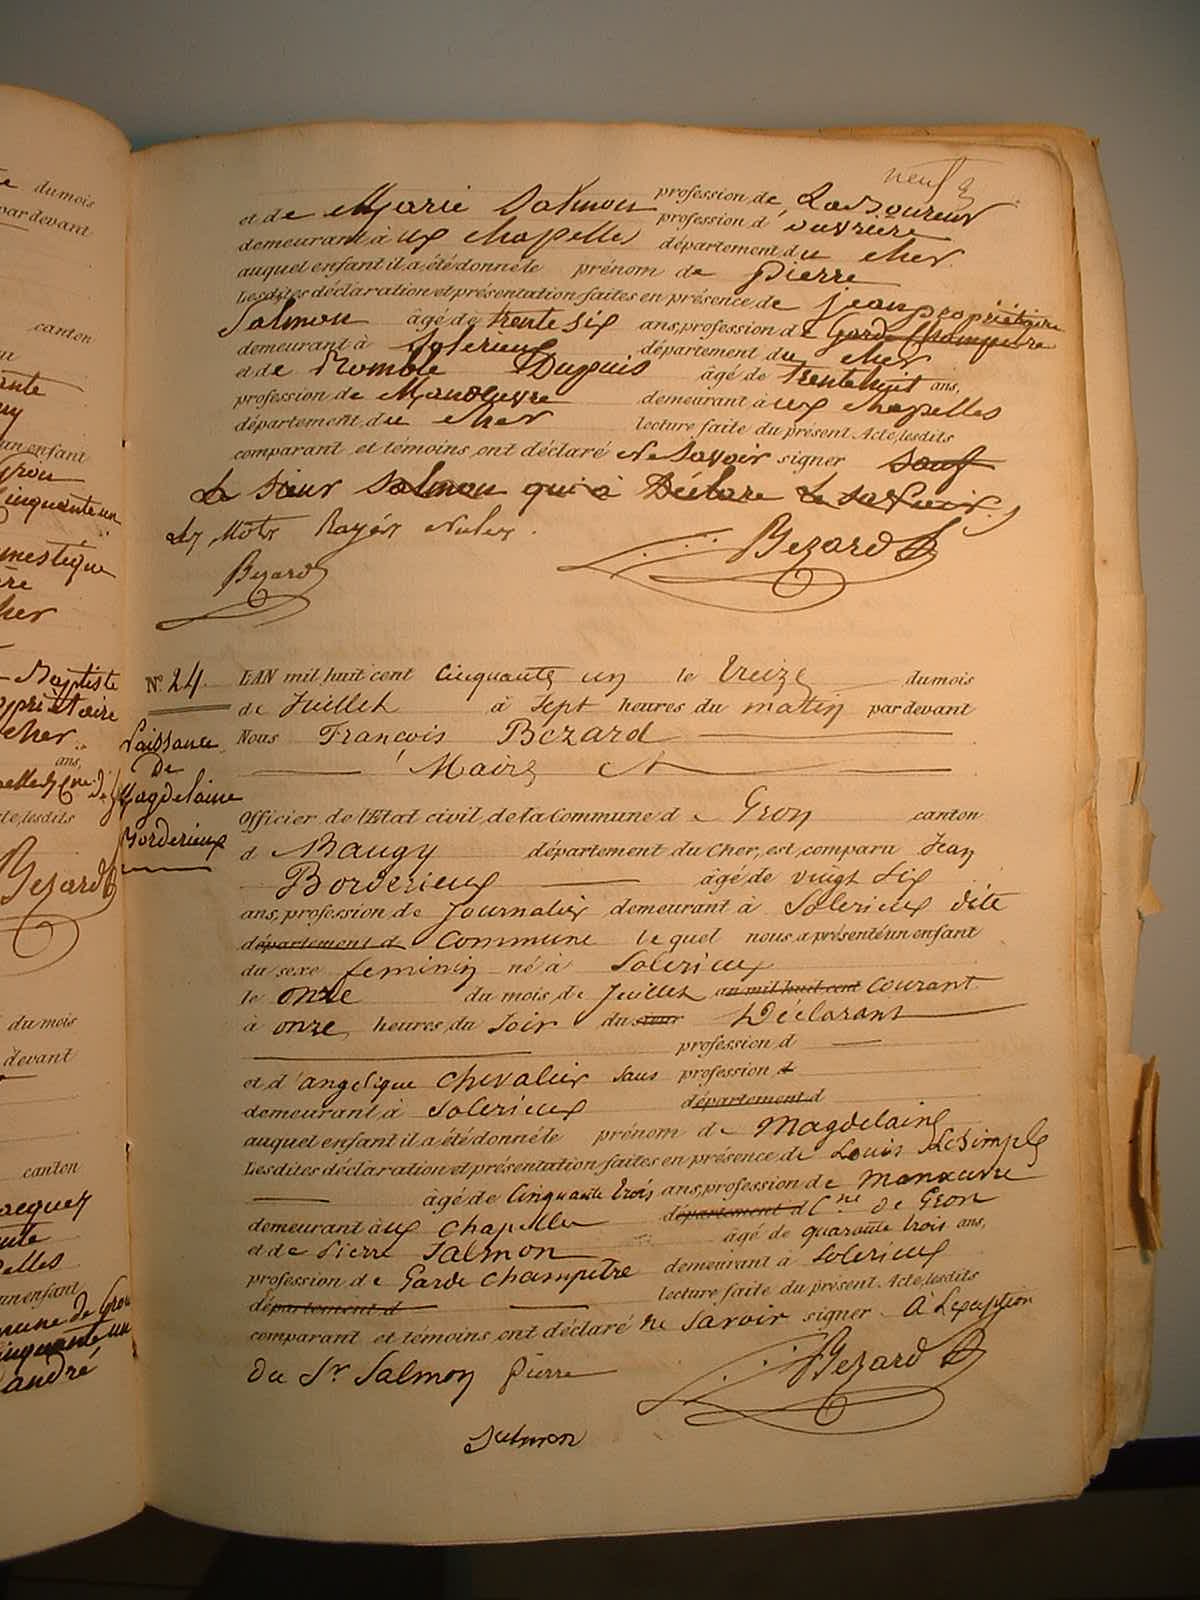 neuf 9
profession de Laboureur
et de Marie Salmon profession d'ouvrière
demeurant à ux chapelles département du cher
auquel enfant il a été donné le prénom de pierre
Lesdites déclaration et présentation faites en présence de jean
propriétaire
Salmon âgé de trente six ans, profession de Garde Champetre
demeurant à Solerieux département du cher
et de Romble Dupuis âgé de trente huit ans,
profession de Manoeuvre demeurant à ux chapelles
département du cher lecture faite du présent Acte, lesdits
comparant et témoins ont déclaré Ne Savoir signer sauf
Le Sieur Salmon qui a Déclare Le Savoir
Mots Rayés Nules.
Bezard
Bezard
N° 24
Naissance
De
Magdelaine
Borderieux
L'AN mil huit cent cinquante un le treize du mois
de Juillet à Sept heures du matin par devant
Nous François Bezard
Maire
Officier de l'Etat civil, de la Commune de Gron canton
d Baugy département du Cher, est comparu Jean
Borderieux âgé de vingt six
ans, profession de Journalier demeurant à Solerieux dite
département d Commune lequel nous a présenté un enfant
du sexe feminin né à Solerieux
le onze du mois de Juillet an mil huit cent Courant
à onze heures du Soir du sieur Déclarant
profession d
et d'angelique chevalier sans profession d
demeurant à Solerieux département d
auquel enfant il a été donné le prénom de Magdelaine
Lesdites déclaration et présentation faites en présence de Louis LeSimple
âgé de Cinquante trois ans, profession de manœuvre
demeurant à ux Chapelles département d Cne de Gron
et de Pierre Salmon âgé de quarante trois ans,
profession de Garde champetre demeurant à Solerieux
département d lecture faite du présent Acte, lesdits
comparant et témoins ont déclaré ne Savoir signer à Lexception
du Sr Salmon pierre
Bezard
Salmon